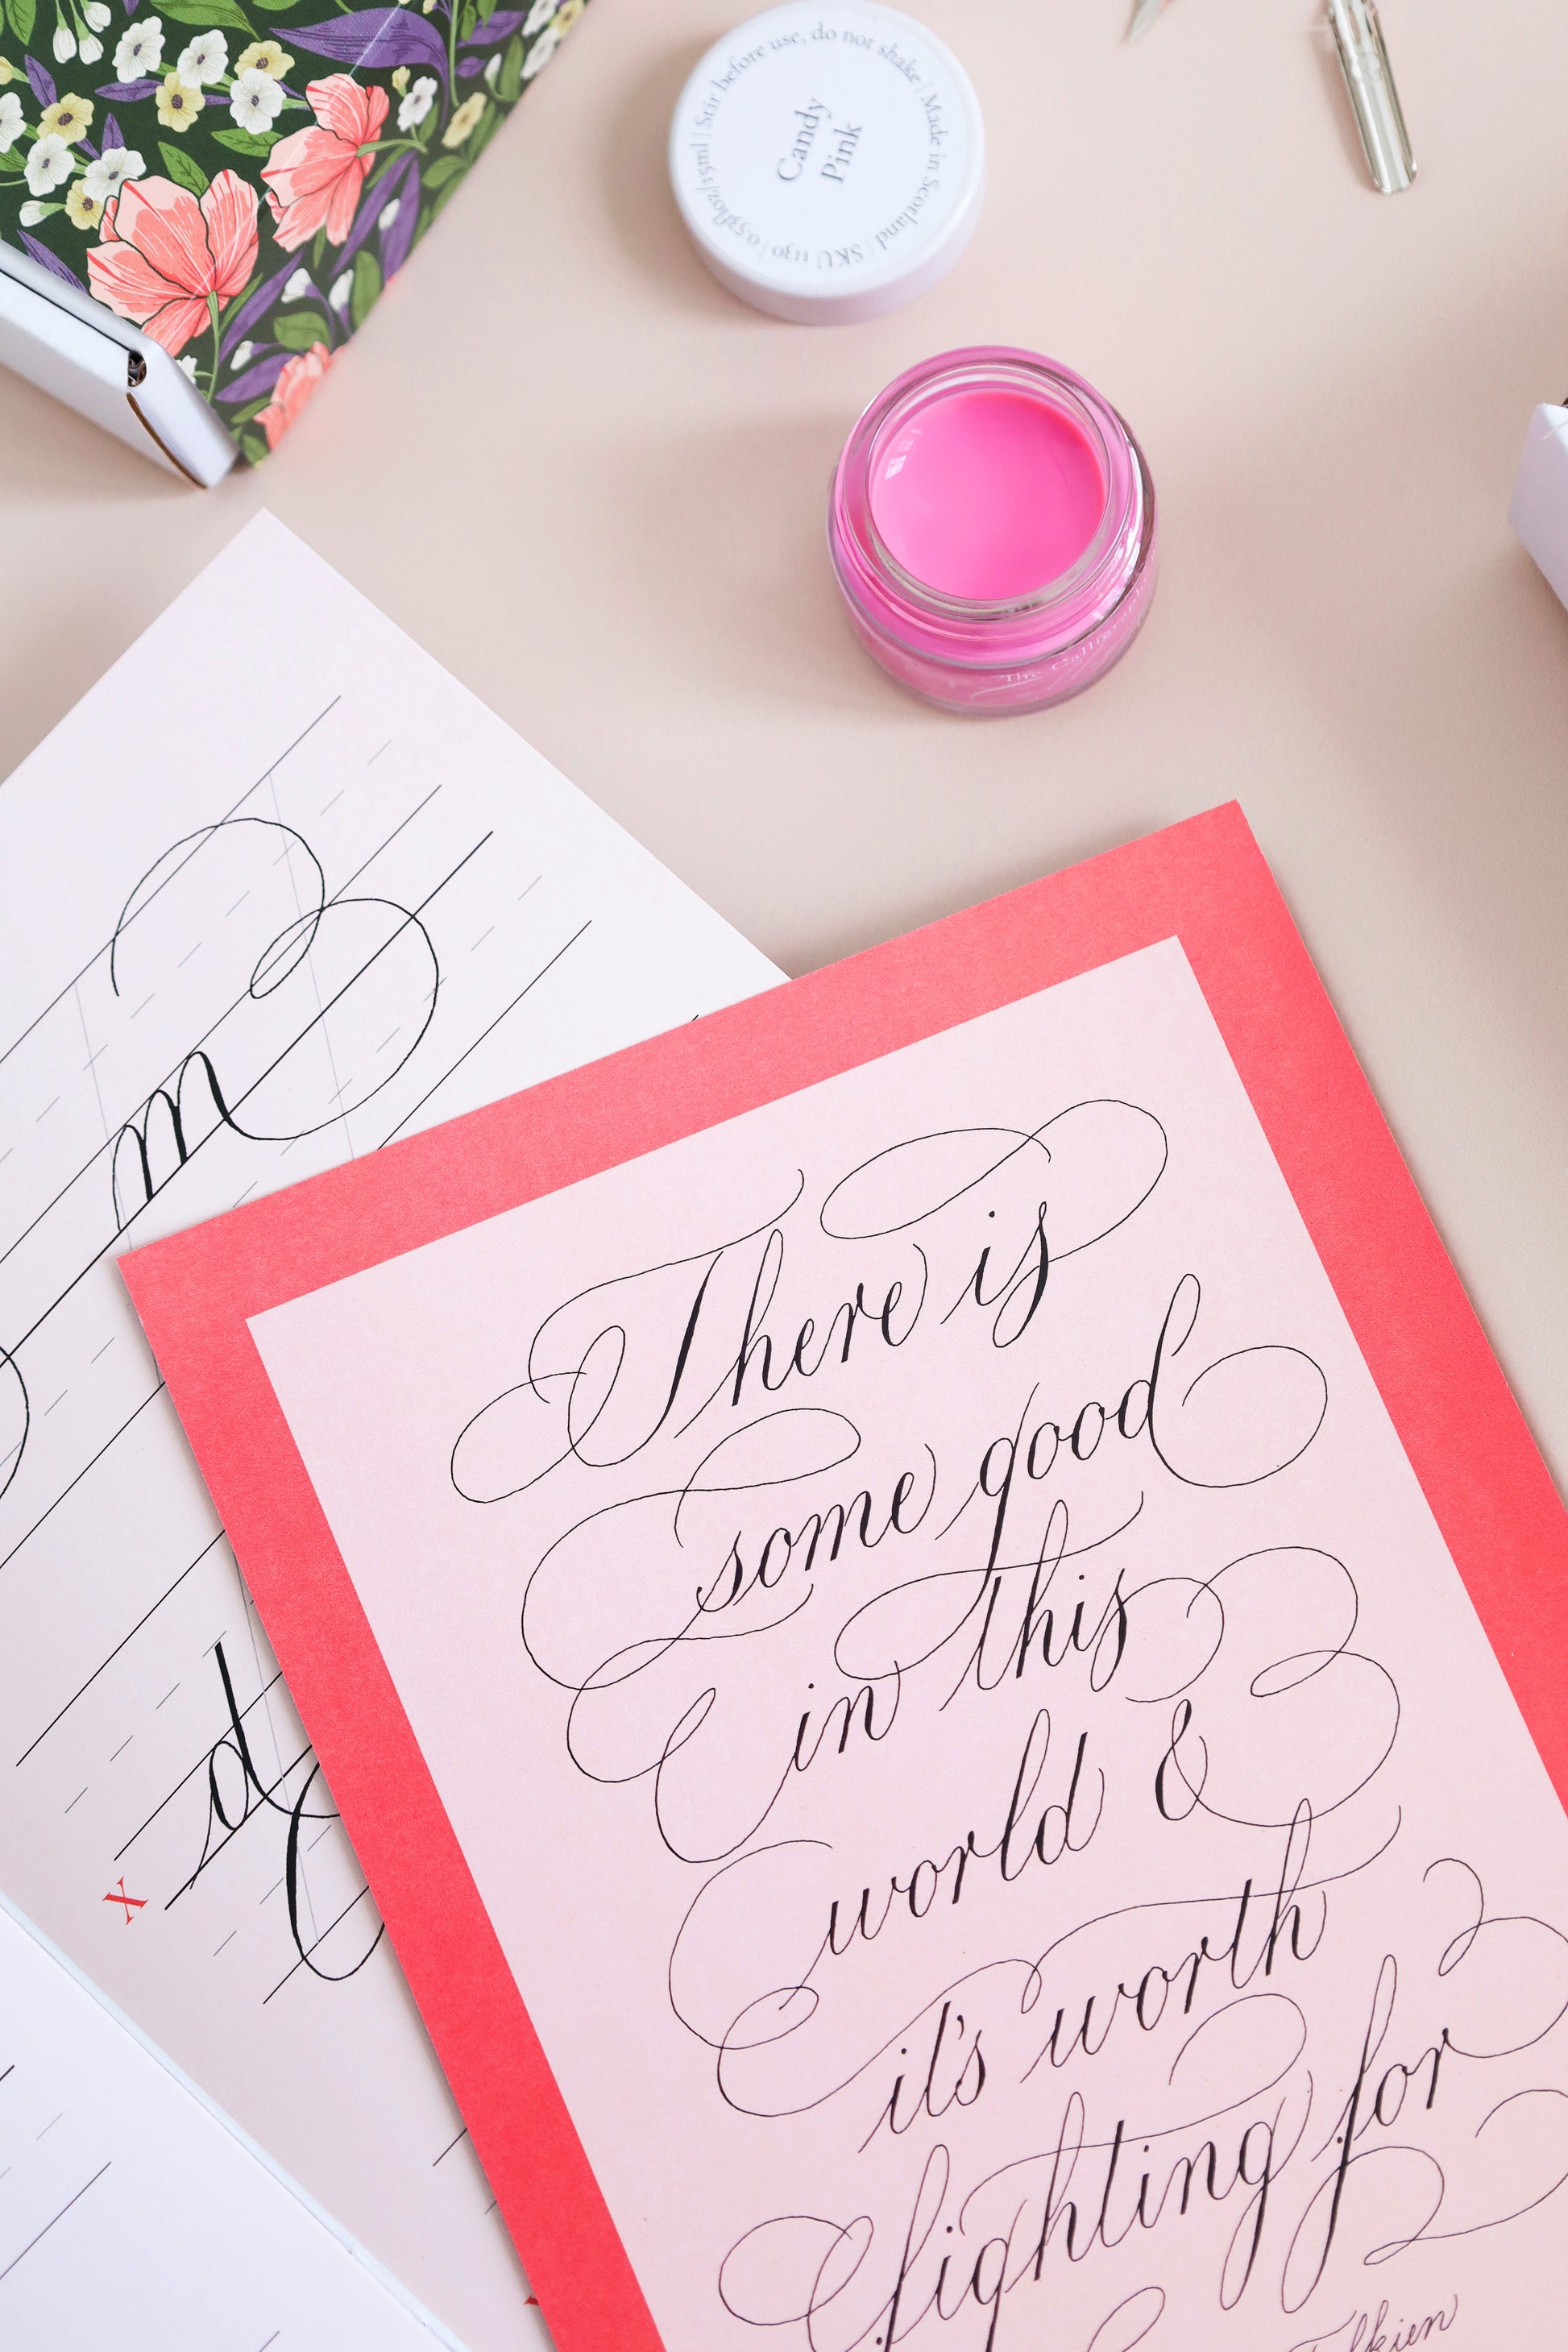 Candy
Pink
Stir before use, do not shake | Made in Scotland | SKU 1130 | 0.53floz/15ml |
The Calligraphy
m
d
x
There is
some good
in this
world &
it's worth
fighting for
Tolkien